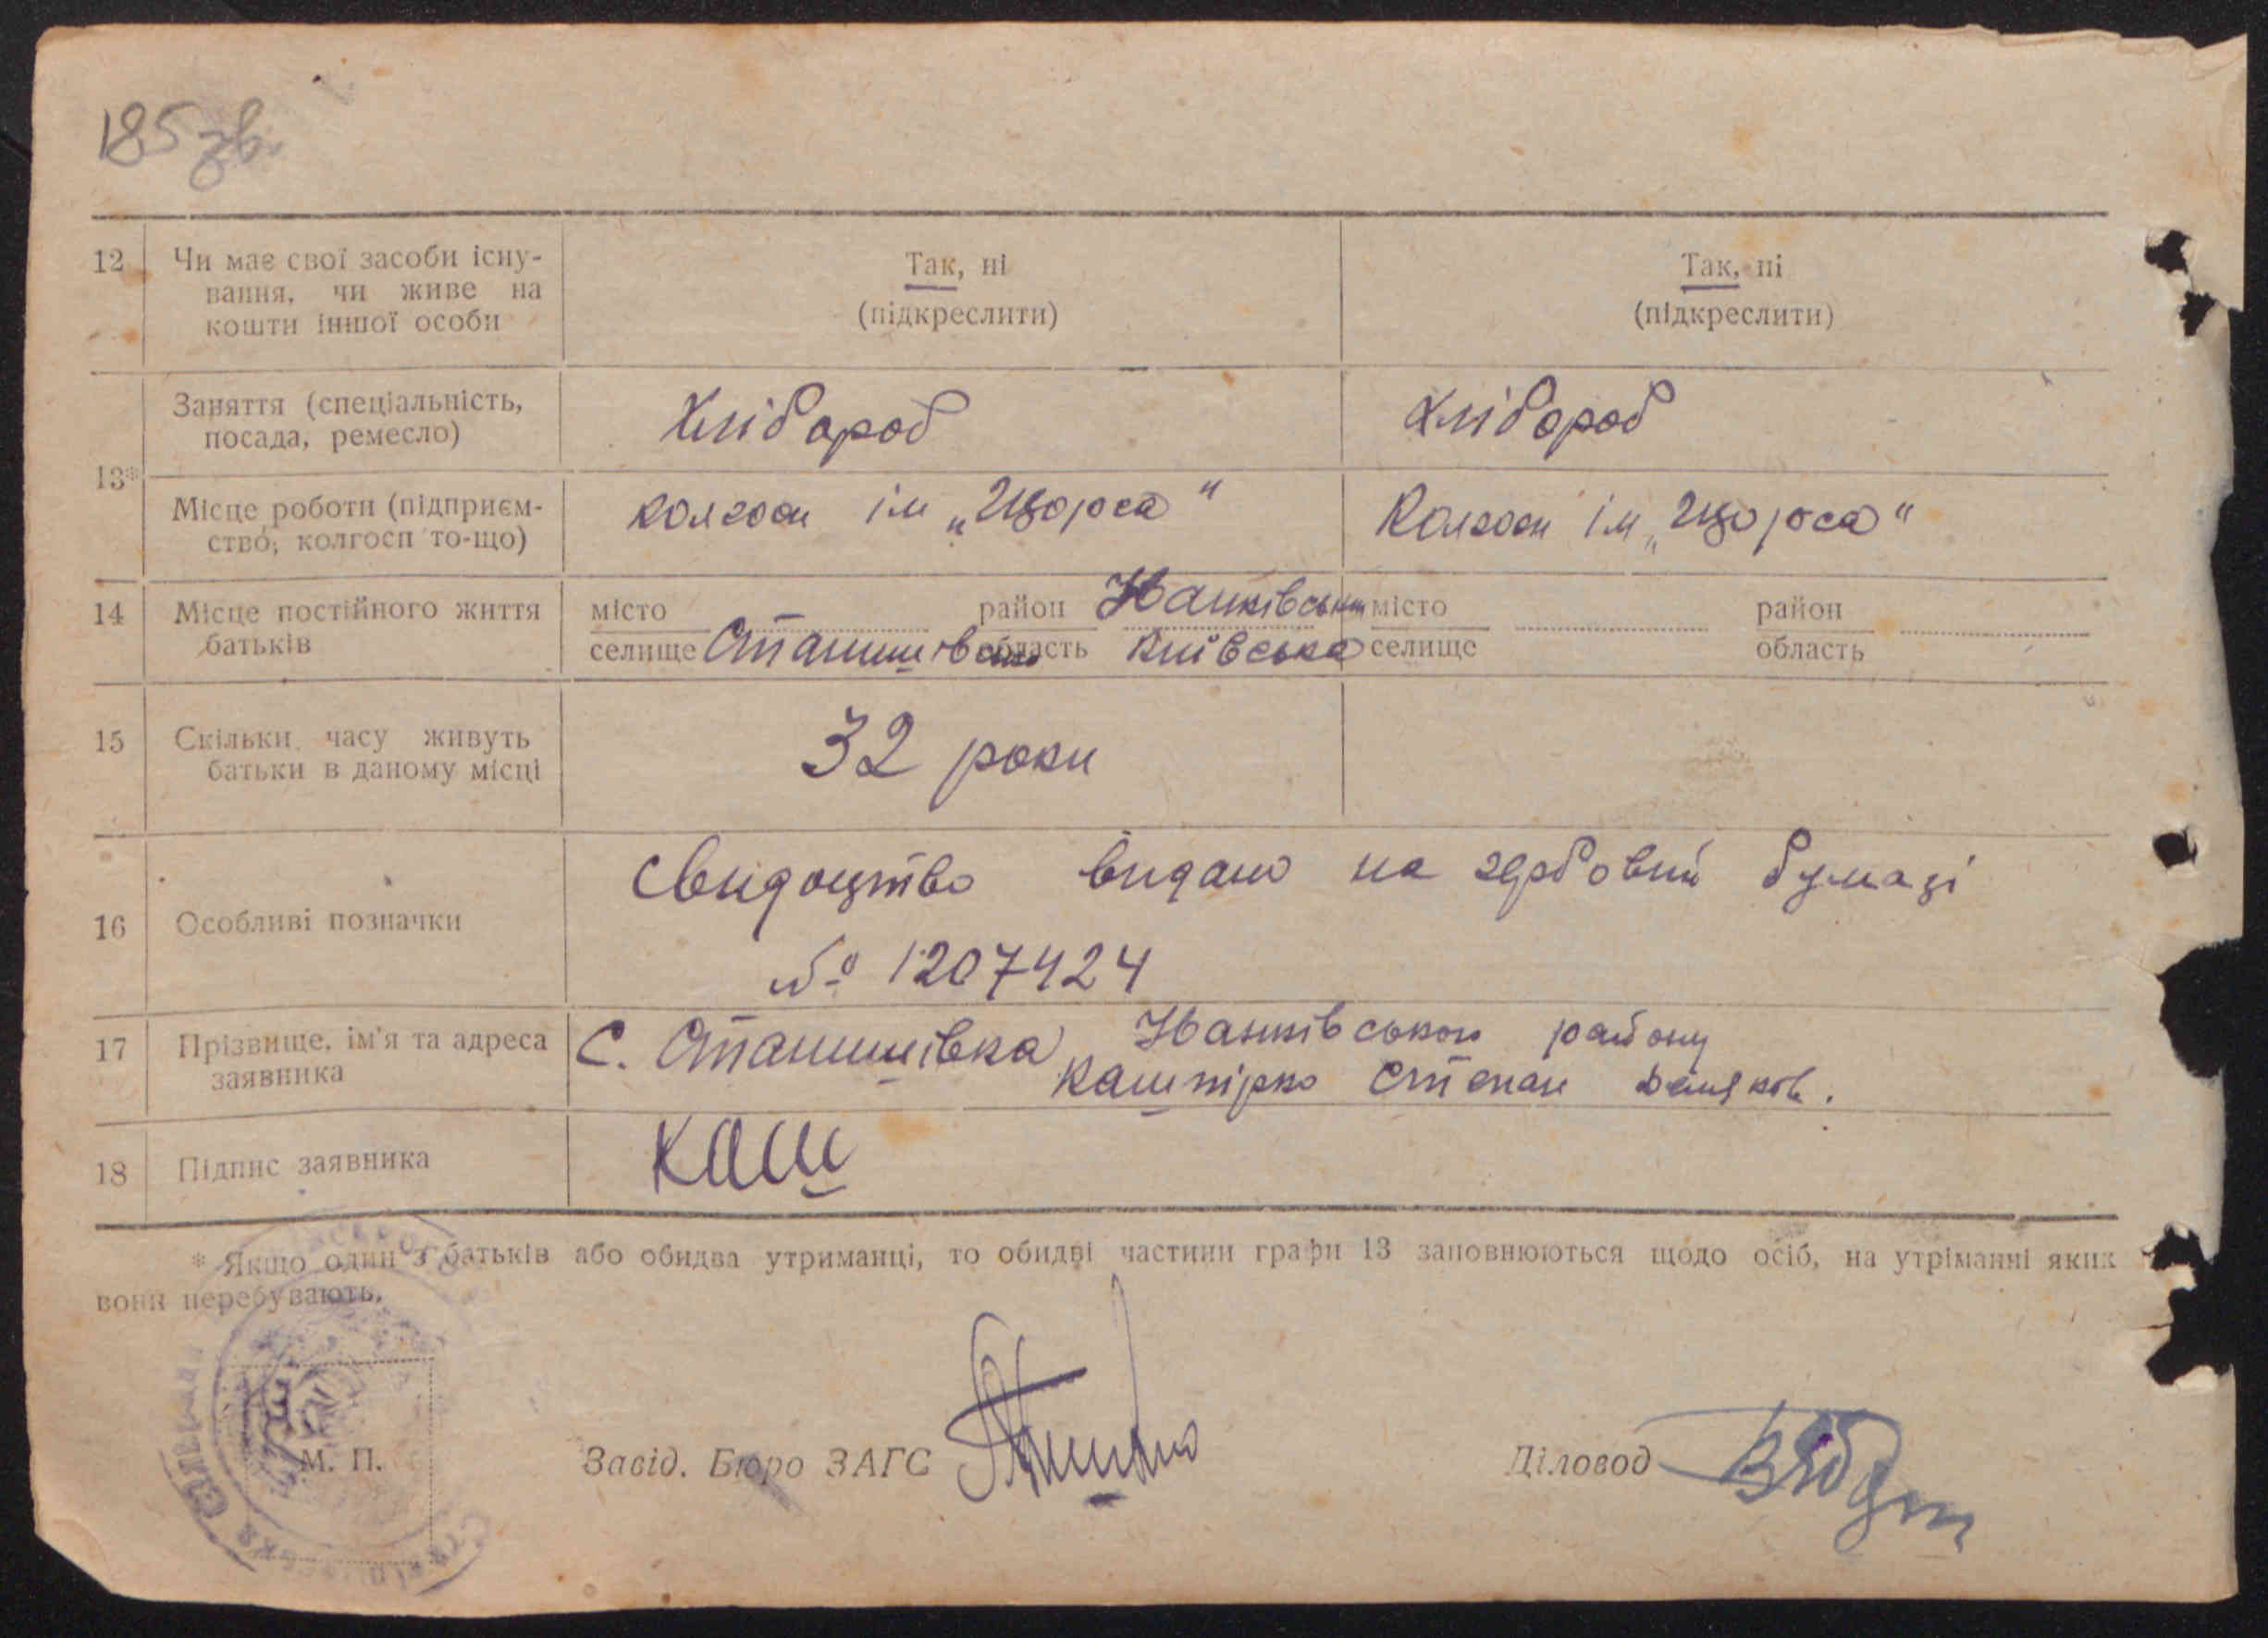 185 зв.
12 Чи має свої засоби існу-
вання, чи живе на
кошти іншої особи
Так, ні
(підкреслити)
Так, ні
(підкреслити)
13*
Заняття (спеціальність,
посада, ремесло)
Хлібороб
Хлібороб
Місце роботи (підприєм-
ство, колгосп то-що)
колгосп ім „Щорса“
Колгосп ім „Щорса“
14 Місце постійного життя
батьків
місто район Іванківський
селище Станишівсько область Київська
місто район
селище область
15 Скільки часу живуть
батьки в даному місці
32 роки
16 Особливі позначки
Свидоцтво видано на гербовий бумазі
№ 1207424
17 Прізвище, ім'я та адреса
заявника
С. Станишівка Іванківського району
Кашпірко Степан
18 Підпис заявника
Каш
* Якщо один з батьків або обидва утриманці, то обидві частини графи 13 заповнюються щодо осіб, на утріманні яких
вони перебувають.
М. П.
Завід. Бюро ЗАГС
Діловод